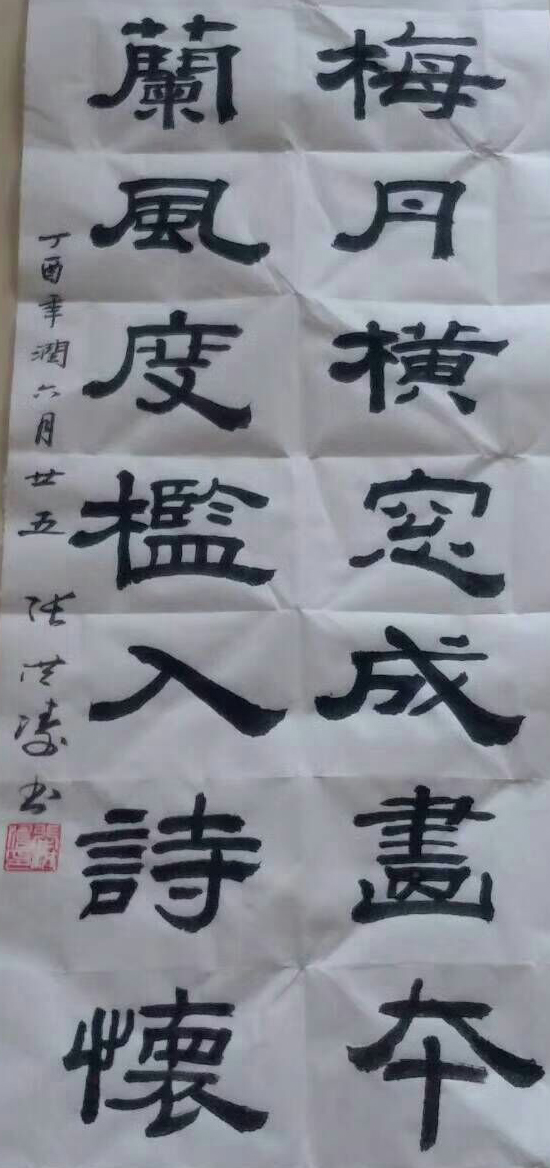 梅月橫窓成畫本
蘭風度檻入詩懷
丁酉年潤六月廿五 张洪书